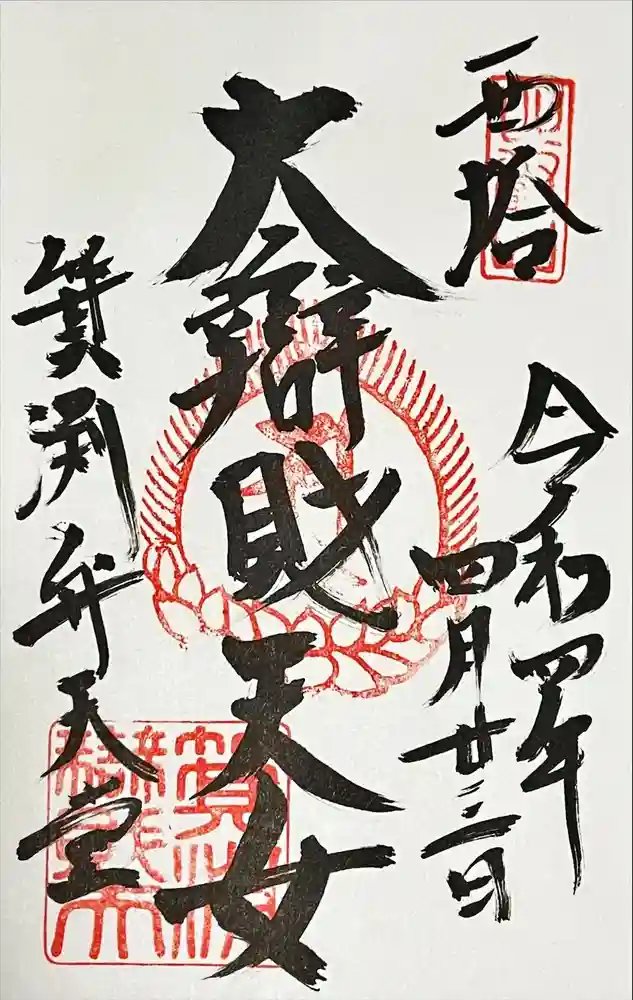 西塔
令和四年
四月廿三日
大辯財天女
箕渕弁天堂